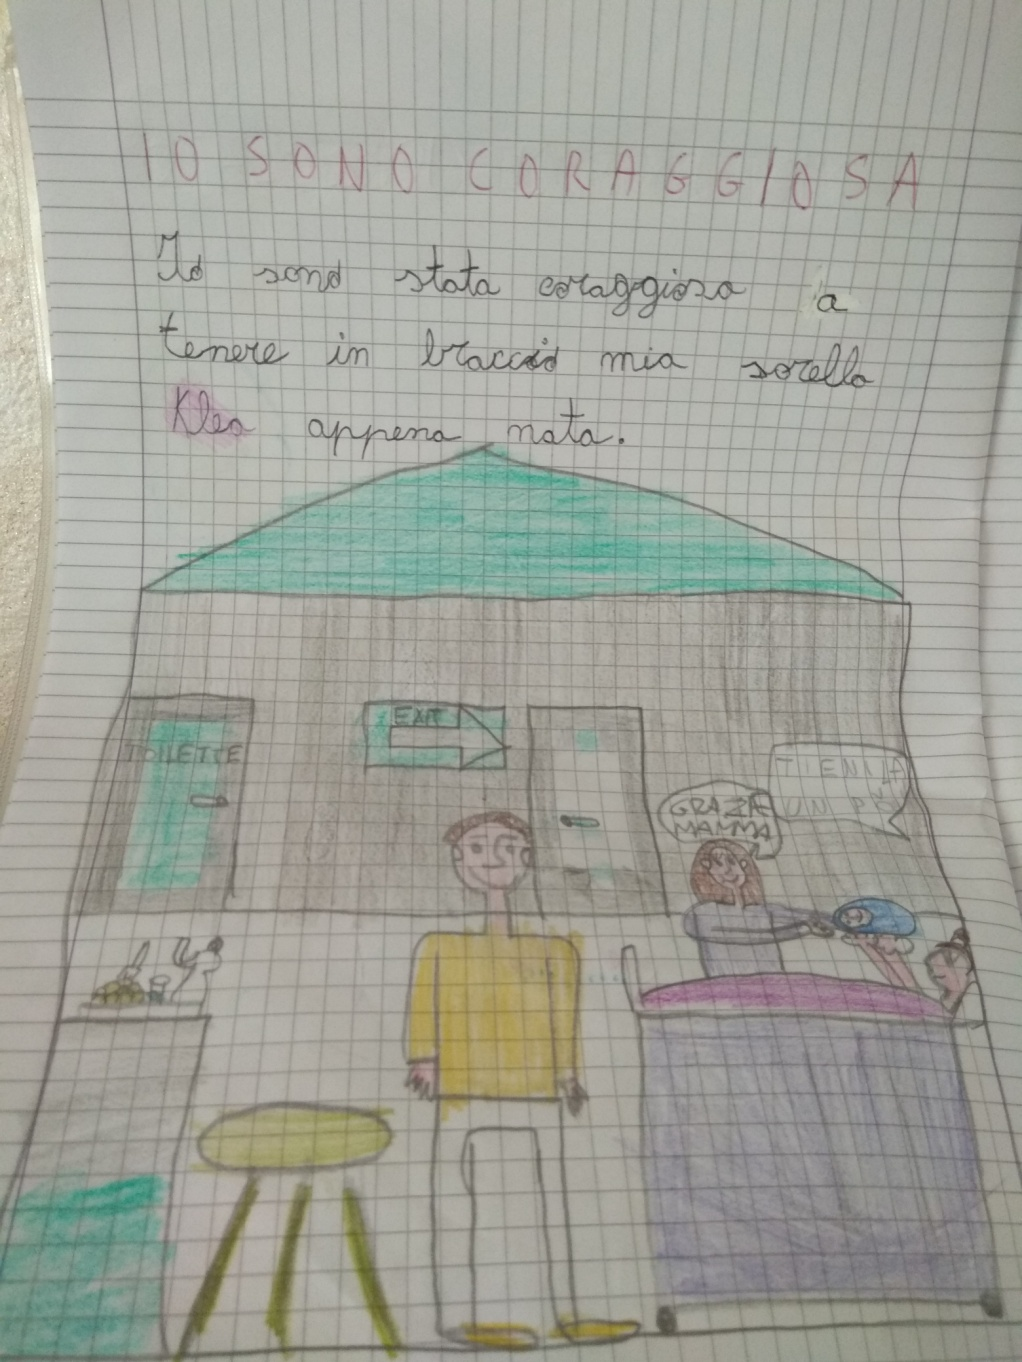 IO SONO CORAGGIOSA
Io sono stata coraggiosa a
tenere in braccio mia sorella
Klea appena nata.
TOILETTE
EXIT
GRAZIE
MAMMA
TIENILA
UN PÒ